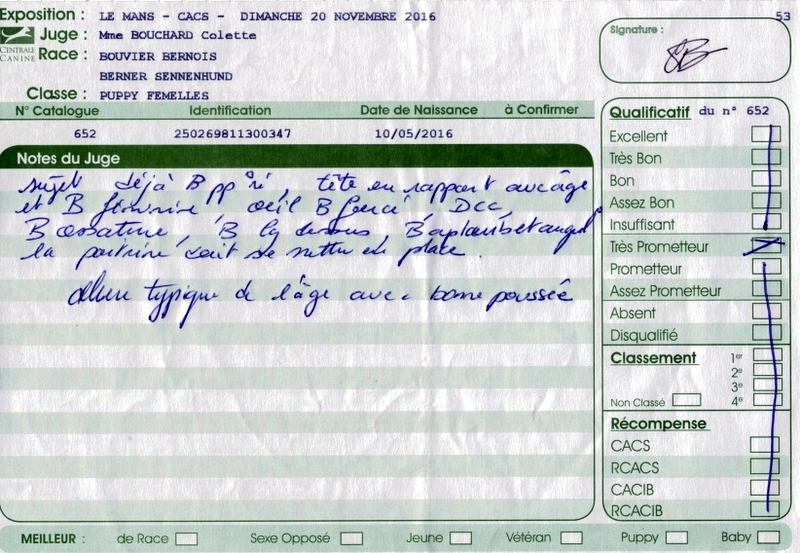 Exposition : LE MANS - CACS - DIMANCHE 20 NOVEMBRE 2016
53
CENTRALE CANINE
Juge : Mme BOUCHARD Colette
Race : BOUVIER BERNOIS
BERNER SENNENHUND
Classe : PUPPY FEMELLES
Signature :
N° Catalogue Identification Date de Naissance à Confirmer
652 250269811300347 10/05/2016
Notes du Juge
sujet déjà B pp°né, tête en rapport avec âge
et B féminine oeil B foncé, Dcc,
B ossature, B lg dessus, B aplomb et angul
la poitrine doit se mettre en place.
allure typique de l'âge avec bonne poussée
Qualificatif du n° 652
Excellent
Très Bon
Bon
Assez Bon
Insuffisant
Très Prometteur
Prometteur
Assez Prometteur
Absent
Disqualifié
Classement 1er
2e
3e
Non Classé 4e
Récompense
CACS
RCACS
CACIB
RCACIB
MEILLEUR : de Race Sexe Opposé Jeune Vétéran Puppy Baby